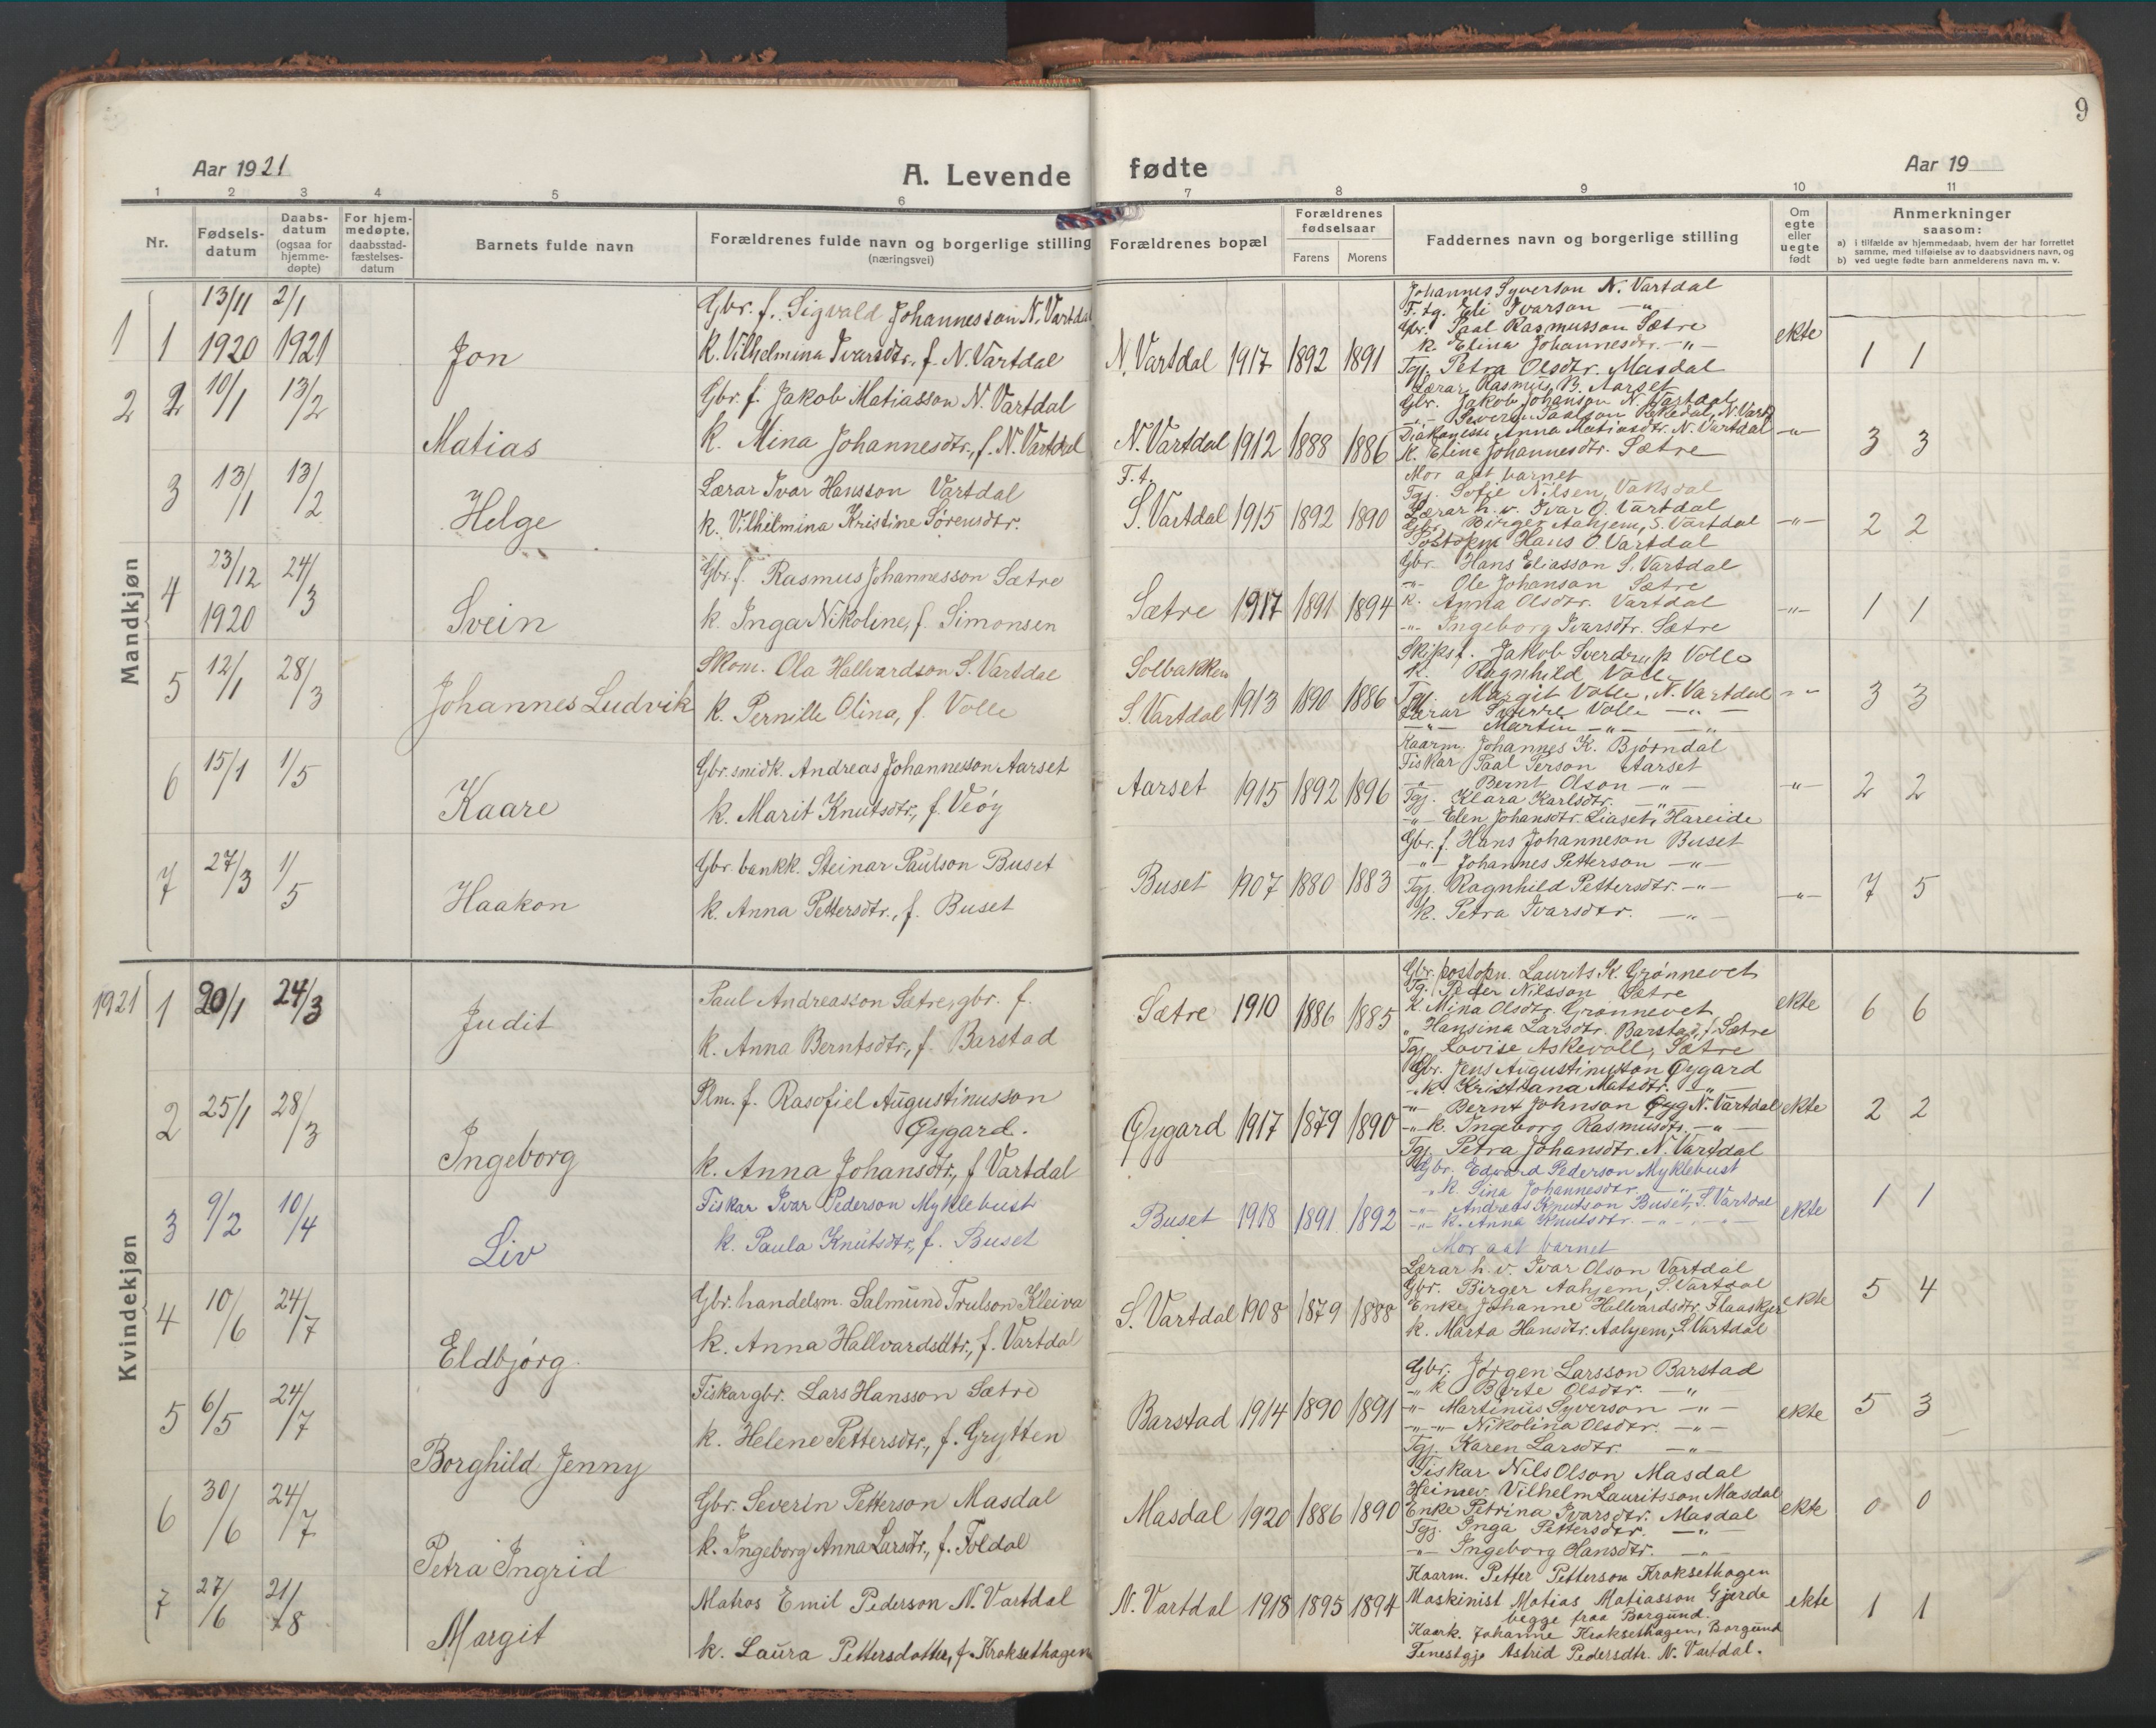 9
Aar 1921
A. Levende
fødte
Aar 19
1 2 3 4 5 6 7 8 9 10 11
Nr.
Fødsels-
datum
Daabs-
datum
(ogsaa for
hjemme-
døpte)
For hjem-
medøpte,
daabsstad-
fæstelses-
datum
Barnets fulde navn
Forældrenes fulde navn og borgerlige stilling
(næringsvei)
Forældrenes bopæl
Forældrenes
fødselsaar
Farens
Morens
Faddernes navn og borgerlige stilling
Om
egte
eller
uegte
født
Anmerkninger
saasom:
a) i tilfælde av hjemmedaab, hvem der har forrettet
samme, med tilføielse av to daabsvidners navn, og
b) ved uegte fødte barn anmelderens navn m. v.
Mandkjøn
1 1 13/11 1920 2/1 1921
Jon
Gbr. f. Sigvald Johannesson N. Vartdal
k. Vilhelmina Ivarsdtr., f. N. Vartdal
N. Vartdal 1917 1892 1891
Johannes Syverson N. Vartdal
F. tg. Eli Ivarson -"-
Gbr. Paal Rasmusson Sætre
k. Elina Johannesdtr. -"-
Tgj. Petra Olsdtr. Masdal
ekte 1 1
2 2 10/1 13/2
Matias
Gbr. f. Jakob Matiasson N. Vartdal
k. Mina Johannesdtr., f. N. Vartdal
N. Vartdal 1912 1888 1886
Lærar Rasmus B. Aarset
Gbr. Jakob Johanson N. Vartdal
-"- Severin Paalson Rekkedal, N. Vartd
Diakonisse Anna Matiasdtr. N. Vartdal
k. Elina Johannesdtr. Sætre
-"- 3 3
3 13/1 13/2
Helge
Lærar Ivar Hansson Vartdal
k. Vilhelmina Kristine Sørensdtr.
F. t.
S. Vartdal 1915 1892 1890
Mor aat barnet
Tgj. Sofie Nilsen, Vaksdal
Lærar h. v. Ivar O. Vartdal
Gbr. Birger Aahjem, S. Vartdal
Postopn Hans O. Vartdal
-"- 2 2
4 23/12 1920 24/3
Svein
Gbr. f. Rasmus Johannesson Sætre
k. Inga Nikoline, f. Simonsen
Sætre 1917 1891 1894
Gbr. Hans Eliasson S. Vartdal
-"- Ole Johanson Sætre
k. Anna Olsdtr. Vartdal
-"- Ingeborg Ivarsdtr. Sætre
-"- 1 1
5 12/1 28/3
Johannes Ludvik
Skom. Ola Hallvardson S. Vartdal
k. Pernille Olina, f. Volle
Solbakken
S. Vartdal 1913 1890 1886
Skipsf. Jakob Sverdrup Volle
k. Ragnhild Volle
Tgj. Margit Volle, N. Vartdal
Lærar Sverre Volle -"-
-"- Martin -"- -"-
-"- 3 3
6 15/1 1/5
Kaare
Gbr. snidk. Andreas Johannesson Aarset
k. Marit Knutsdtr., f. Veöy
Aarset 1915 1892 1896
Kaarm. Johannes K. Bjørndal
Fiskar Paal Person Aarset
-"- Bernt Olson -"-
Tgj. Klara Karlsdtr. -"-
-"- Elen Johansdtr. Liaset, Hareide
-"- 2 2
7 27/3 1/5
Haakon
Gbr. bankk. Steinar Paulson Buset
k. Anna Pettersdtr., f. Buset
Buset 1907 1880 1883
Gbr. f. Hans Johanneson Buset
-"- Johannes Petterson -"-
Tgj. Ragnhild Pettersdtr. -"-
k. Petra Ivarsdtr. -"-
-"- 7 5
Kvindekjøn
1921 1 20/1 24/3
Judit
Paul Andreasson Sætre, gbr. f.
k. Anna Berntsdtr., f. Barstad
Sætre 1910 1886 1885
Gbr. postopn. Laurits K. Grønnevet
Tg. Peder Nilsson Sætre
k. Mina Olsdtr. Grønnevet
" Hansina Larsdtr. Barstad, f. Sætre
Tgj. Lovise Askevoll, Sætre
ekte 6 6
2 25/1 28/3
Ingeborg
Plm. f. Rasofiel Augustinusson
Øygard.
k. Anna Johansdtr., f Vartdal
Øygard 1917 1879 1890
Gbr. Jens Augustinusson Øygard
-"- k. Kristiana Matsdtr. -"-
-"- Bernt Johnson Øyg N. Vartdal
-"- k. Ingeborg Rasmusdtr. -"-
Tgj. Petra Johansdtr. N. Vartdal
ekte 2 2
3 9/2 10/4
Liv
Fiskar Ivar Pederson Myklebust
k. Paula Knutsdtr., f. Buset
Buset 1918 1891 1892
Gbr. Edvard Pederson Myklebust
-"- k. Sina Johannesdtr. -"-
-"- Andreas Knutson Buset, S. Vartdal
-"- k. Anna Knutsdtr. -"- -"-
Mor aat barnet
ekte 1 1
4 10/6 24/7
Eldbjørg
Gbr. handelsm. Salmund Trulson Kleiva
k. Anna Hallvardsdtr., f. Vartdal
S. Vartdal 1908 1879 1888
Lærar h. v. Ivar Olson Vartdal
Gbr. Birger Aahjem, S. Vartdal
Enke Johanne Hallvardsdtr. Flaaskjer
k. Marta Hansdtr. Aahjem, S. Vartdal
ekte 5 4
5 6/5 24/7
Borghild Jenny
Fiskar gbr. Lars Hansson Sætre
k. Helene Pettersdtr., f. Grytten
Barstad 1914 1890 1891
Gbr. Jørgen Larsson Barstad
-"- k. Berte Olsdtr. -"-
-"- Martinus Syverson -"-
-"- -"- Nikolina Olsdtr. -"-
Tgj. Karen Larsdtr. -"-
ekte 5 3
6 30/6 24/7
Petra Ingrid
Gbr. Severin Petterson Masdal
k. Ingeborg Anna Larsdtr., f. Foldal
Masdal 1920 1886 1890
Fiskar Nils Olson Masdal
Heimev. Vilhelm Lauritsson Masdal
Enke Petrina Ivarsdtr. Masdal
Tgj. Inga Pettersdtr. -"-
-"- Ingeborg Hansdtr. -"-
ekte 0 0
7 27/6 21/8
Margit
Matros Emil Pederson N. Vartdal
k. Laura Pettersdotter, f. Kroksethagen
N. Vartdal 1918 1895 1894
Kaarm. Petter Petterson Kroksethagen
Maskinist Matias Matiasson Gjerde
begge fraa Borgund.
Kaark. Johanne Kroksethagen, Borgund
Tenestgj. Astrid Pedersdtr. N. Vartdal.
ekte 1 1